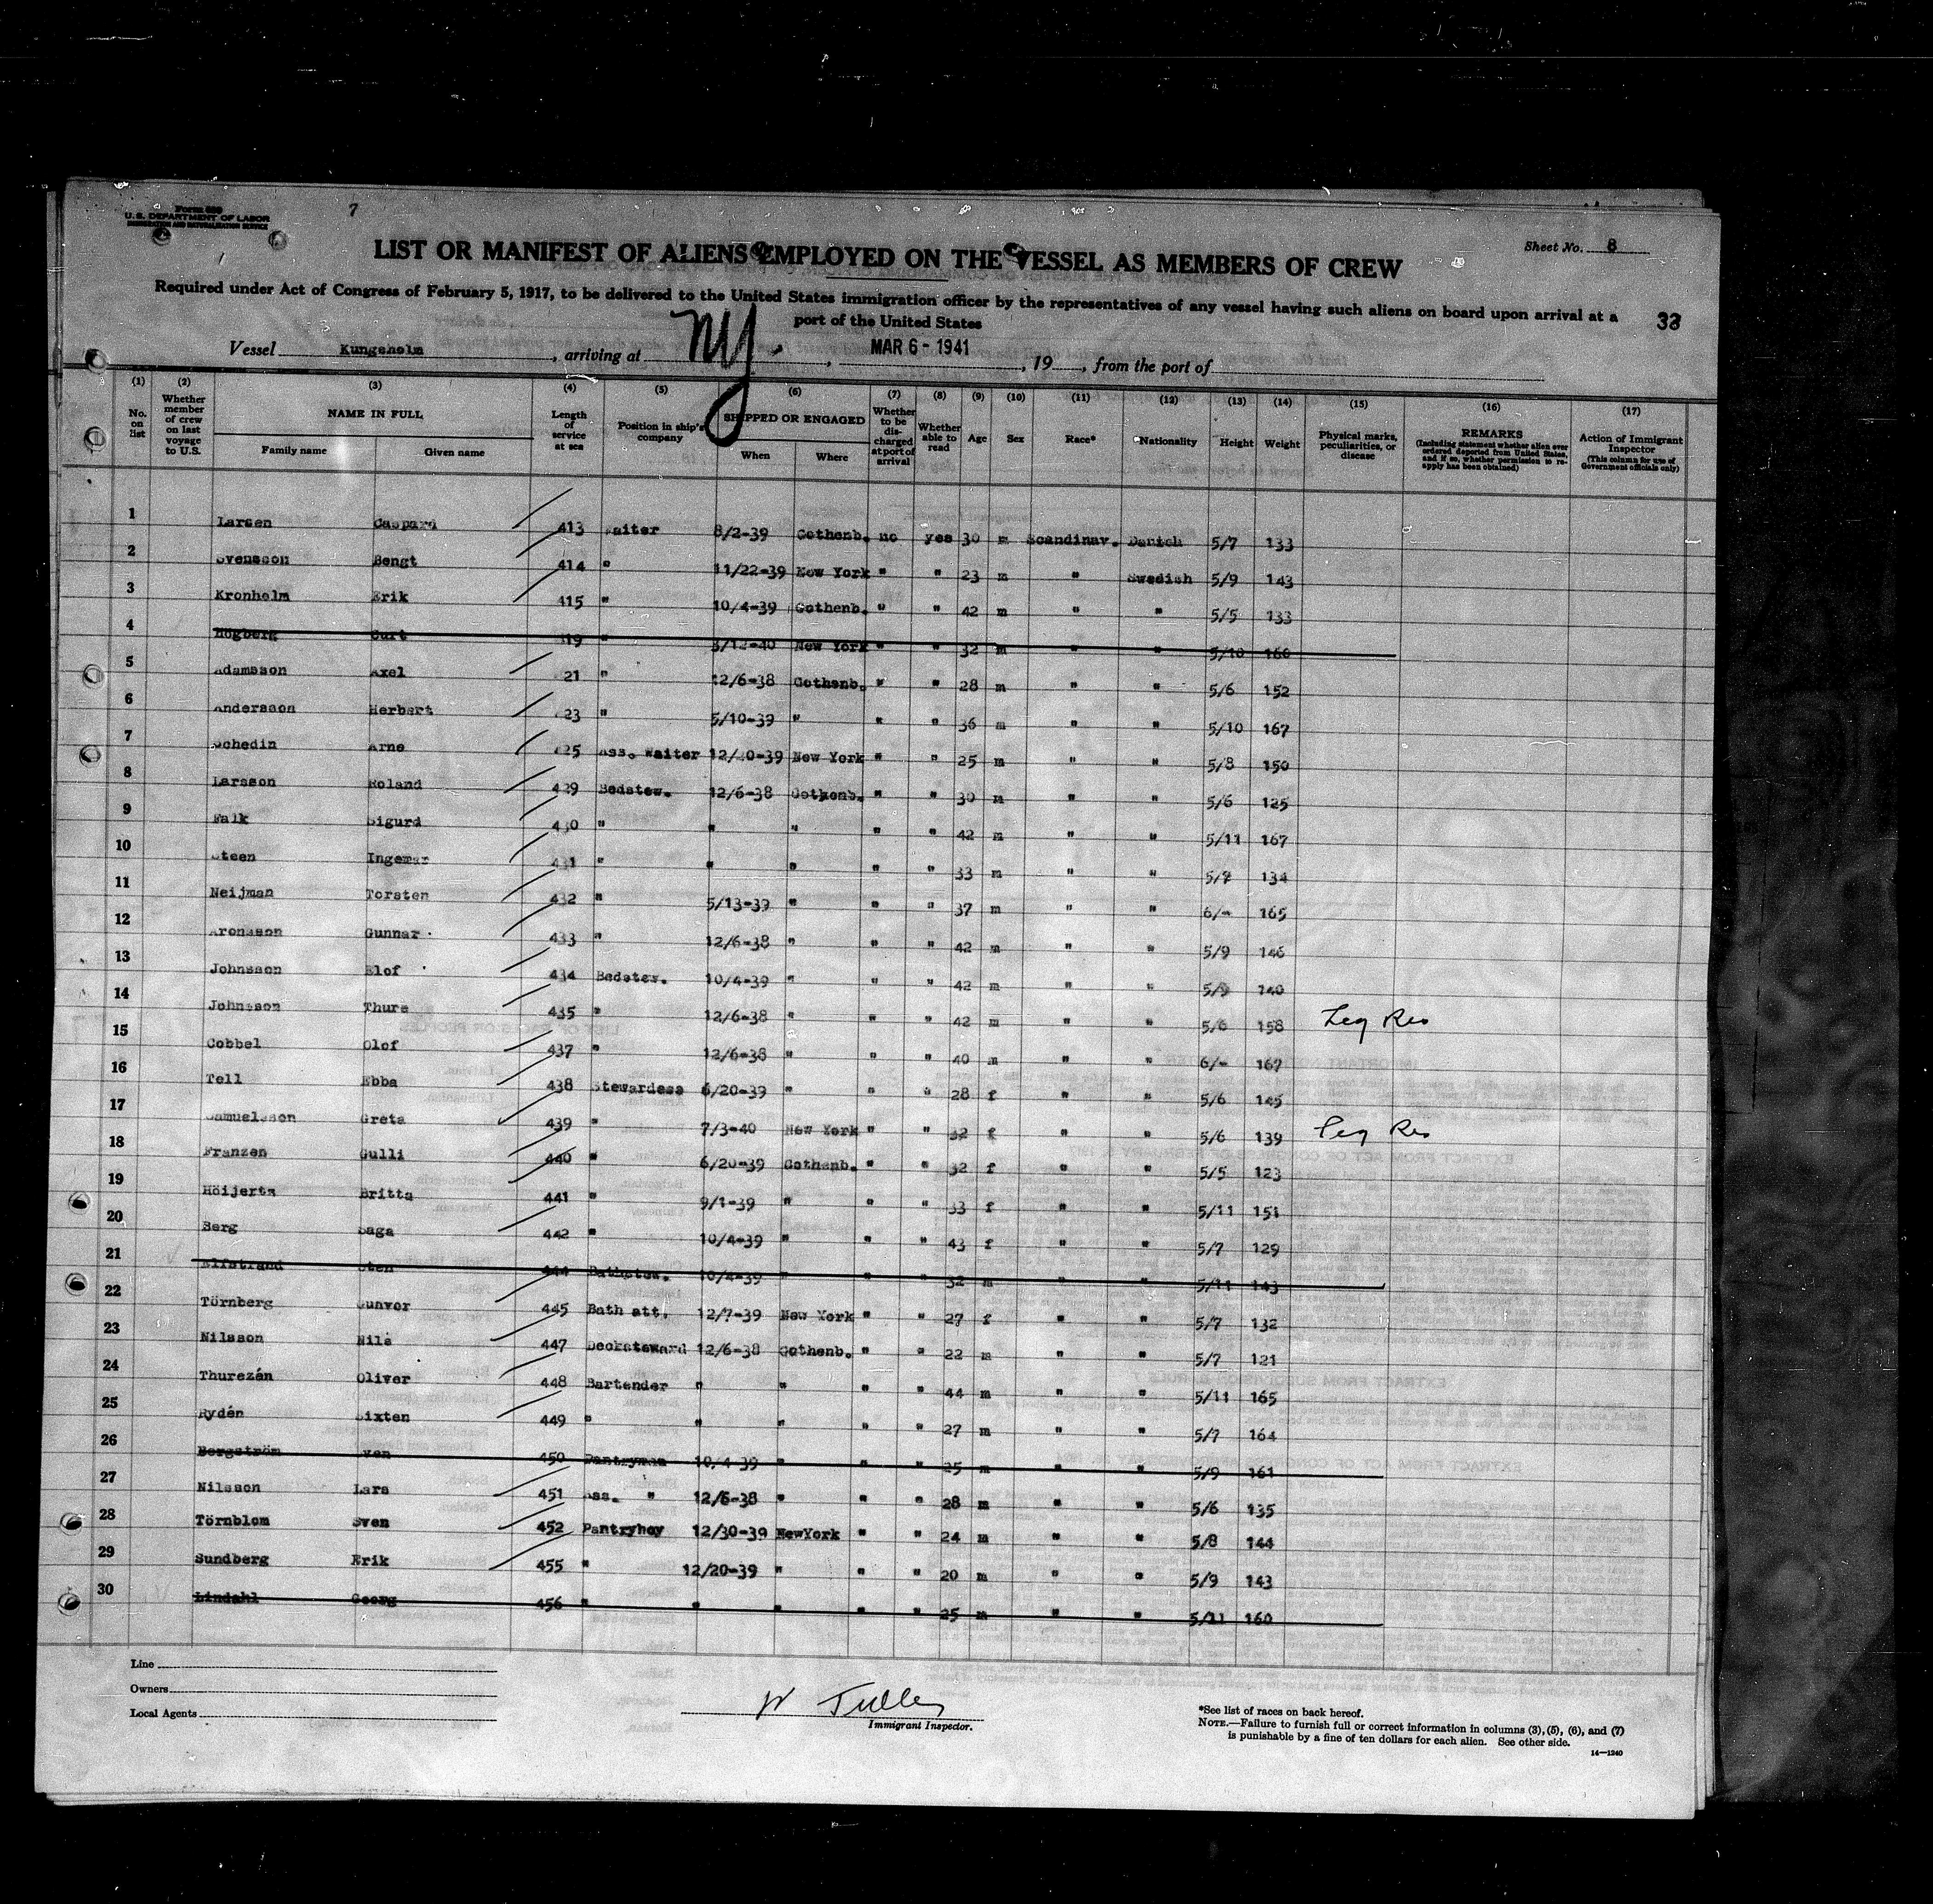 7
Form 680
U. S. DEPARTMENT OF LABOR
IMMIGRATION AND NATURALIZATION SERVICE
Sheet No. 8
LIST OR MANIFEST OF ALIENS EMPLOYED ON THE VESSEL AS MEMBERS OF CREW
Required under Act of Congress of February 5, 1917, to be delivered to the United States immigration officer by the representatives of any vessel having such aliens on board upon arrival at a
port of the United States
33
Vessel Kungsholm, arriving at NY. , MAR 6 - 1941, 19 , from the port of
(1) (2) (3) (4) (5) (6) (7) (8) (9) (10) (11) (12) (13) (14) (15) (16) (17)
No. on list Whether member of crew on last voyage to U.S. NAME IN FULL Family name Given name Length of service at sea Position in ship's company SHIPPED OR ENGAGED When Where Whether to be discharged at port of arrival Whether able to read Age Sex Race* Nationality Height Weight Physical marks, peculiarities, or disease REMARKS (Including statement whether alien ever ordered deported from United States, and if so, whether permission to reapply has been obtained) Action of Immigrant Inspector (This column for use of Government officials only)
1 Larsen Caspard 413 Waiter 8/2-39 Gothenb. no yes 30 m Scandinav. Danish 5/7 133
2 Svensson Bengt 414 " 11/22-39 New York " " 23 m " Swedish 5/9 143
3 Kronholm Erik 415 " 10/4-39 Gothenb. " " 42 m " " 5/5 133
4 Högberg Curt 419 " 3/12-40 New York " " 32 m " " 5/10 160
5 Adamsson Axel 21 " 12/6-38 Gothenb. " " 28 m " " 5/6 152
6 Andersson Herbert 23 " 5/10-39 " " " 36 m " " 5/10 167
7 Schedin Arne 425 Ass. Waiter 12/20-39 New York " " 25 m " " 5/8 150
8 Larsson Roland 429 Bedstew. 12/6-38 Gothenb. " " 30 m " " 5/6 125
9 Falk Sigurd 430 " " " " " 42 m " " 5/11 167
10 Steen Ingemar 431 " " " " " 33 m " " 5/7 134
11 Neijman Torsten 432 " 5/13-39 " " " 37 m " " 6/- 165
12 Aronsson Gunnar 433 " 12/6-38 " " " 42 m " " 5/9 146
13 Johnsson Elof 434 Bedstew. 10/4-39 " " " 42 m " " 5/9 140
14 Johnsson Thure 435 " 12/6-38 " " " 42 m " " 5/6 158 Leg Res
15 Cobbel Olof 437 " 12/6-38 " " " 40 m " " 6/- 167
16 Tell Ebba 438 Stewardess 6/20-39 " " " 28 f " " 5/6 145
17 Samuelsson Greta 439 " 7/3-40 New York " " 32 f " " 5/6 139 Leg Res
18 Franzen Gulli 440 " 6/20-39 Gothenb. " " 32 f " " 5/5 123
19 Höijerts Britta 441 " 9/1-39 " " " 33 f " " 5/11 151
20 Berg Saga 442 " 10/4-39 " " " 43 f " " 5/7 129
21 Elfstrand Sten 444 Bathstew. 10/4-39 " " " 32 m " " 5/11 143
22 Törnberg Gunvor 445 Bath att. 12/7-39 New York " " 27 f " " 5/7 132
23 Nilsson Nils 447 Decksteward 12/6-38 Gothenb. " " 22 m " " 5/7 121
24 Thurezén Oliver 448 Bartender " " " " 44 m " " 5/11 165
25 Rydén Sixten 449 " " " " " 27 m " " 5/7 164
26 Bergström Sven 450 Pantryman 10/4-39 " " " 25 m " " 5/9 161
27 Nilsson Lars 451 Ass. " 12/6-38 " " " 28 m " " 5/6 135
28 Törnblom Sven 452 Pantryboy 12/30-39 NewYork " " 24 m " " 5/8 144
29 Sundberg Erik 455 " 12/20-39 " " " 20 m " " 5/9 143
30 Lindahl Georg 456 " " " " " 25 m " " 5/11 160
Line
Owners
Local Agents
W Tulley
Immigrant Inspector.
*See list of races on back hereof.
NOTE.—Failure to furnish full or correct information in columns (3), (5), (6), and (7)
is punishable by a fine of ten dollars for each alien. See other side.
14—1240